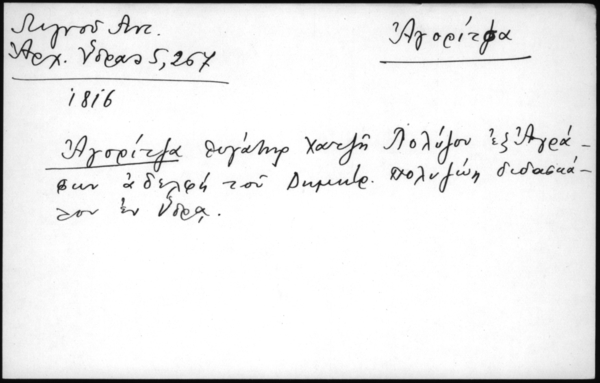 Λιγνοῦ Ἀντ.
Ἀρχ. Ὕδρας 5, 267
Ἀγορίτσα
1816
Ἀγορίτζα θυγάτηρ Χατζῆ Πολύζου ἐξ Ἀγρά-
φων ἀδελφή τοῦ Δημητρ. Πολυζώη διδασκά-
λου ἐν Ὕδρᾳ.